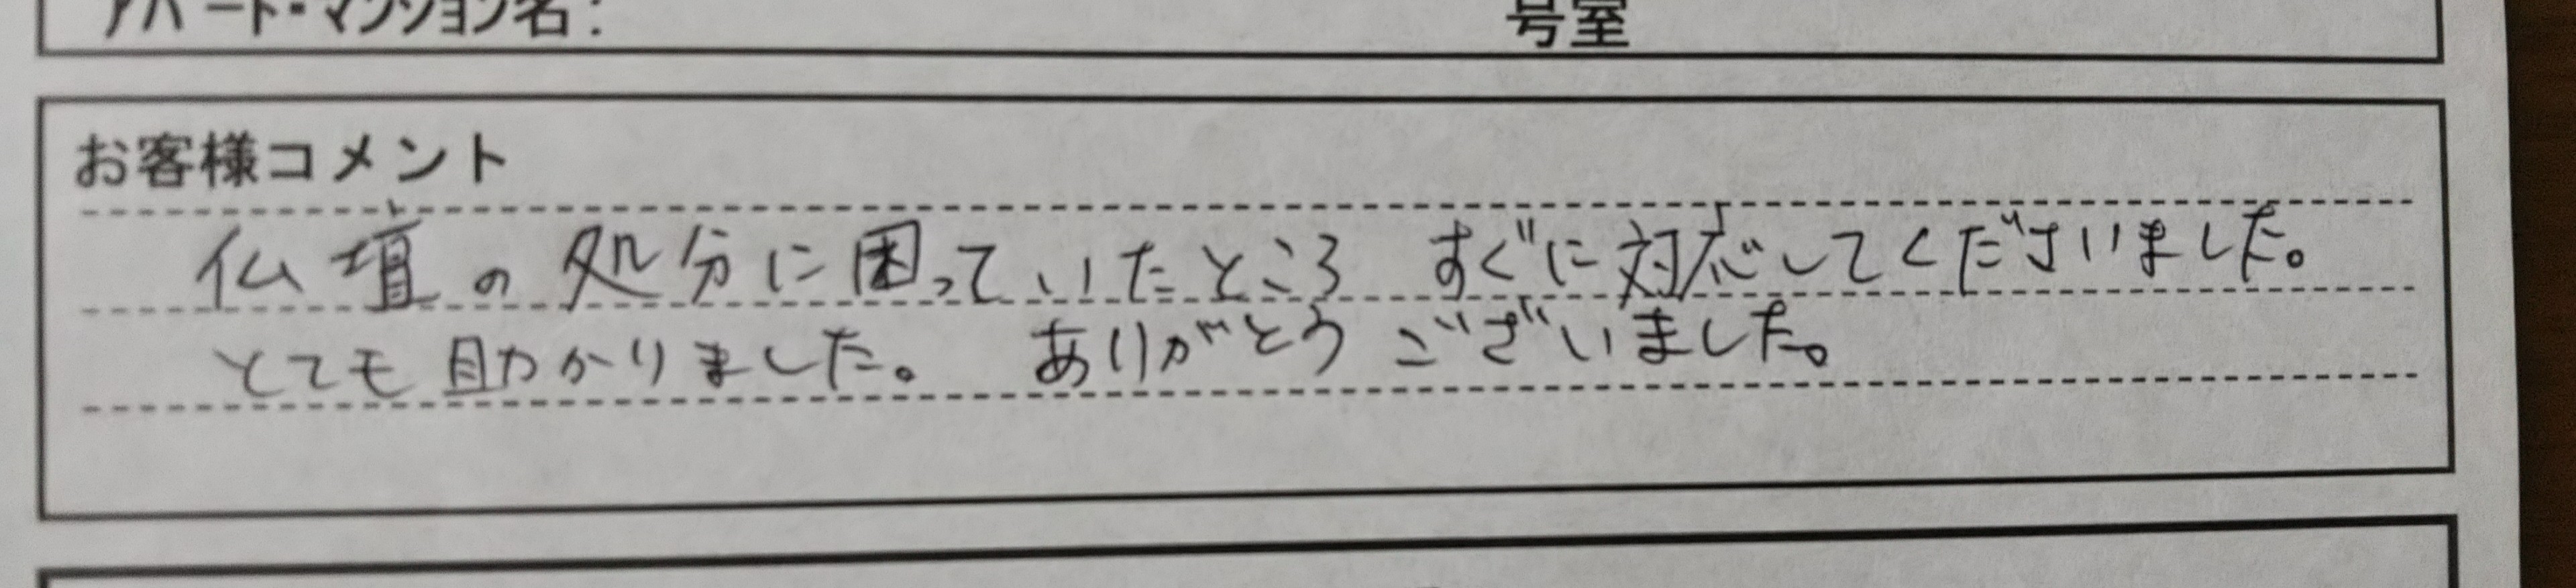 アパート・マンション名: 号室
お客様コメント
仏壇の処分に困っていたところ すぐに対応してくださいました。
とても助かりました。 ありがとうございました。